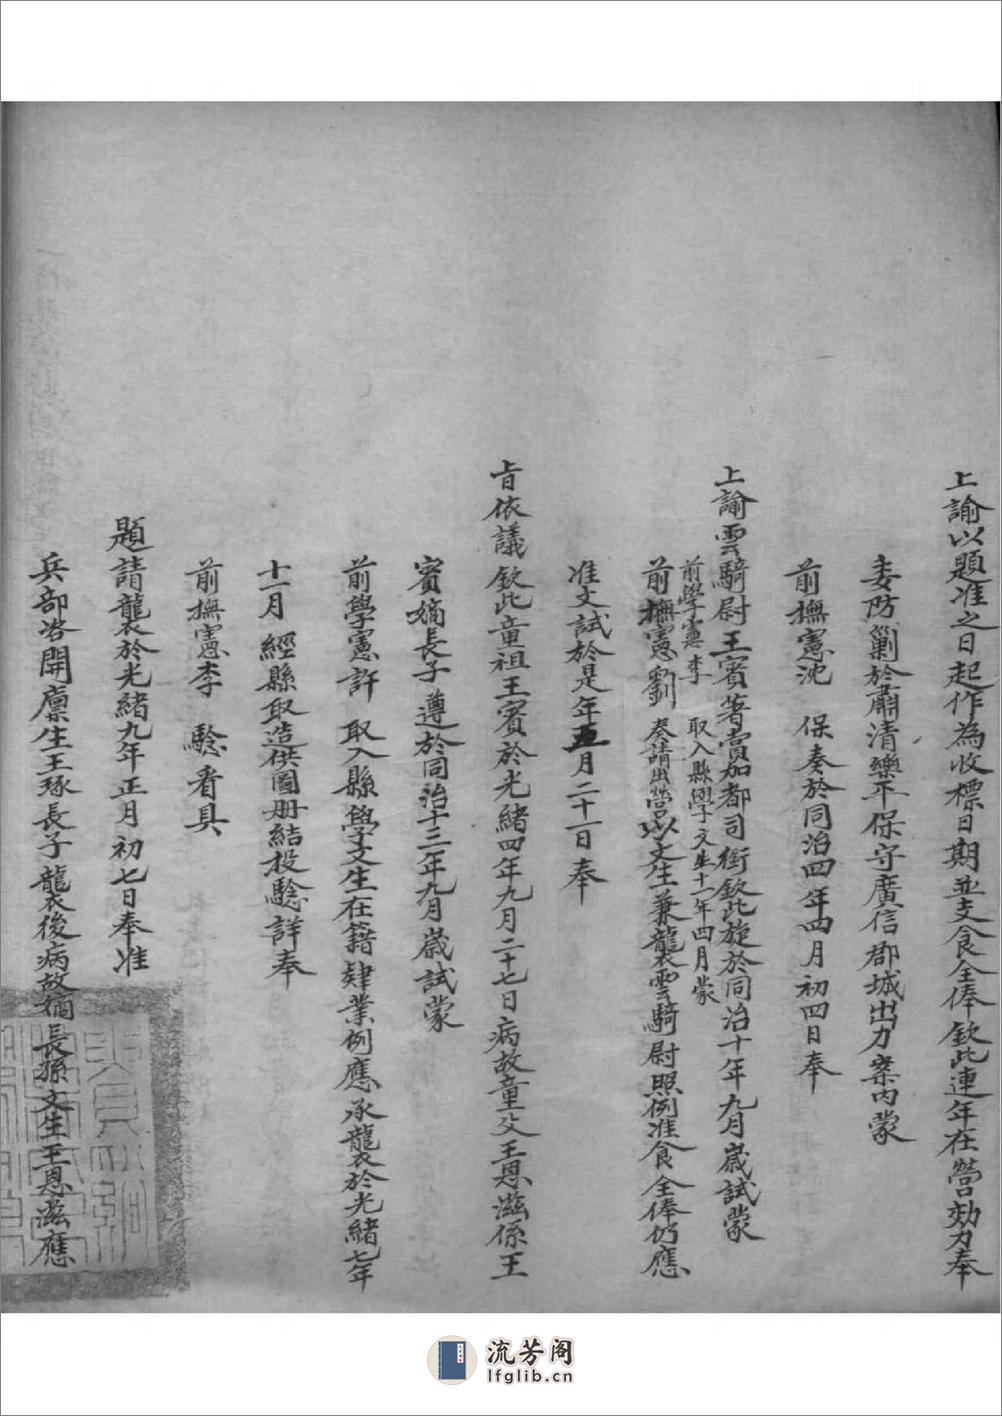 上諭以題准之日起作為收標日期並支食全俸欽此連年在營効力奉
委防剿於肅清樂平保守廣信郡城出力案內蒙
前撫憲沈 保奏於同治四年四月初四日奉
上諭雲騎尉王賓著賞加都司銜欽此旋於同治十年九月歲試蒙
前學憲李 取入縣學文生十一年四月蒙
前撫憲劉 奏請出營以文生兼襲雲騎尉照例准食全俸仍應
准文試於是年五月二十一日奉
旨依議欽此童祖王賓於光緒四年九月二十七日病故童父王恩滋係王
賓嫡長子遵於同治十三年九月歲試蒙
前學憲許 取入縣學文生在籍肄業例應承襲於光緒七年
十一月經縣取造供圖册結投驗詳奉
前撫憲李 驗看具
題請襲於光緒九年正月初七日奉准
兵部咨開廩生王琢長子襲後病故嫡長孫文生王恩滋應
流芳阁
lfglib.cn